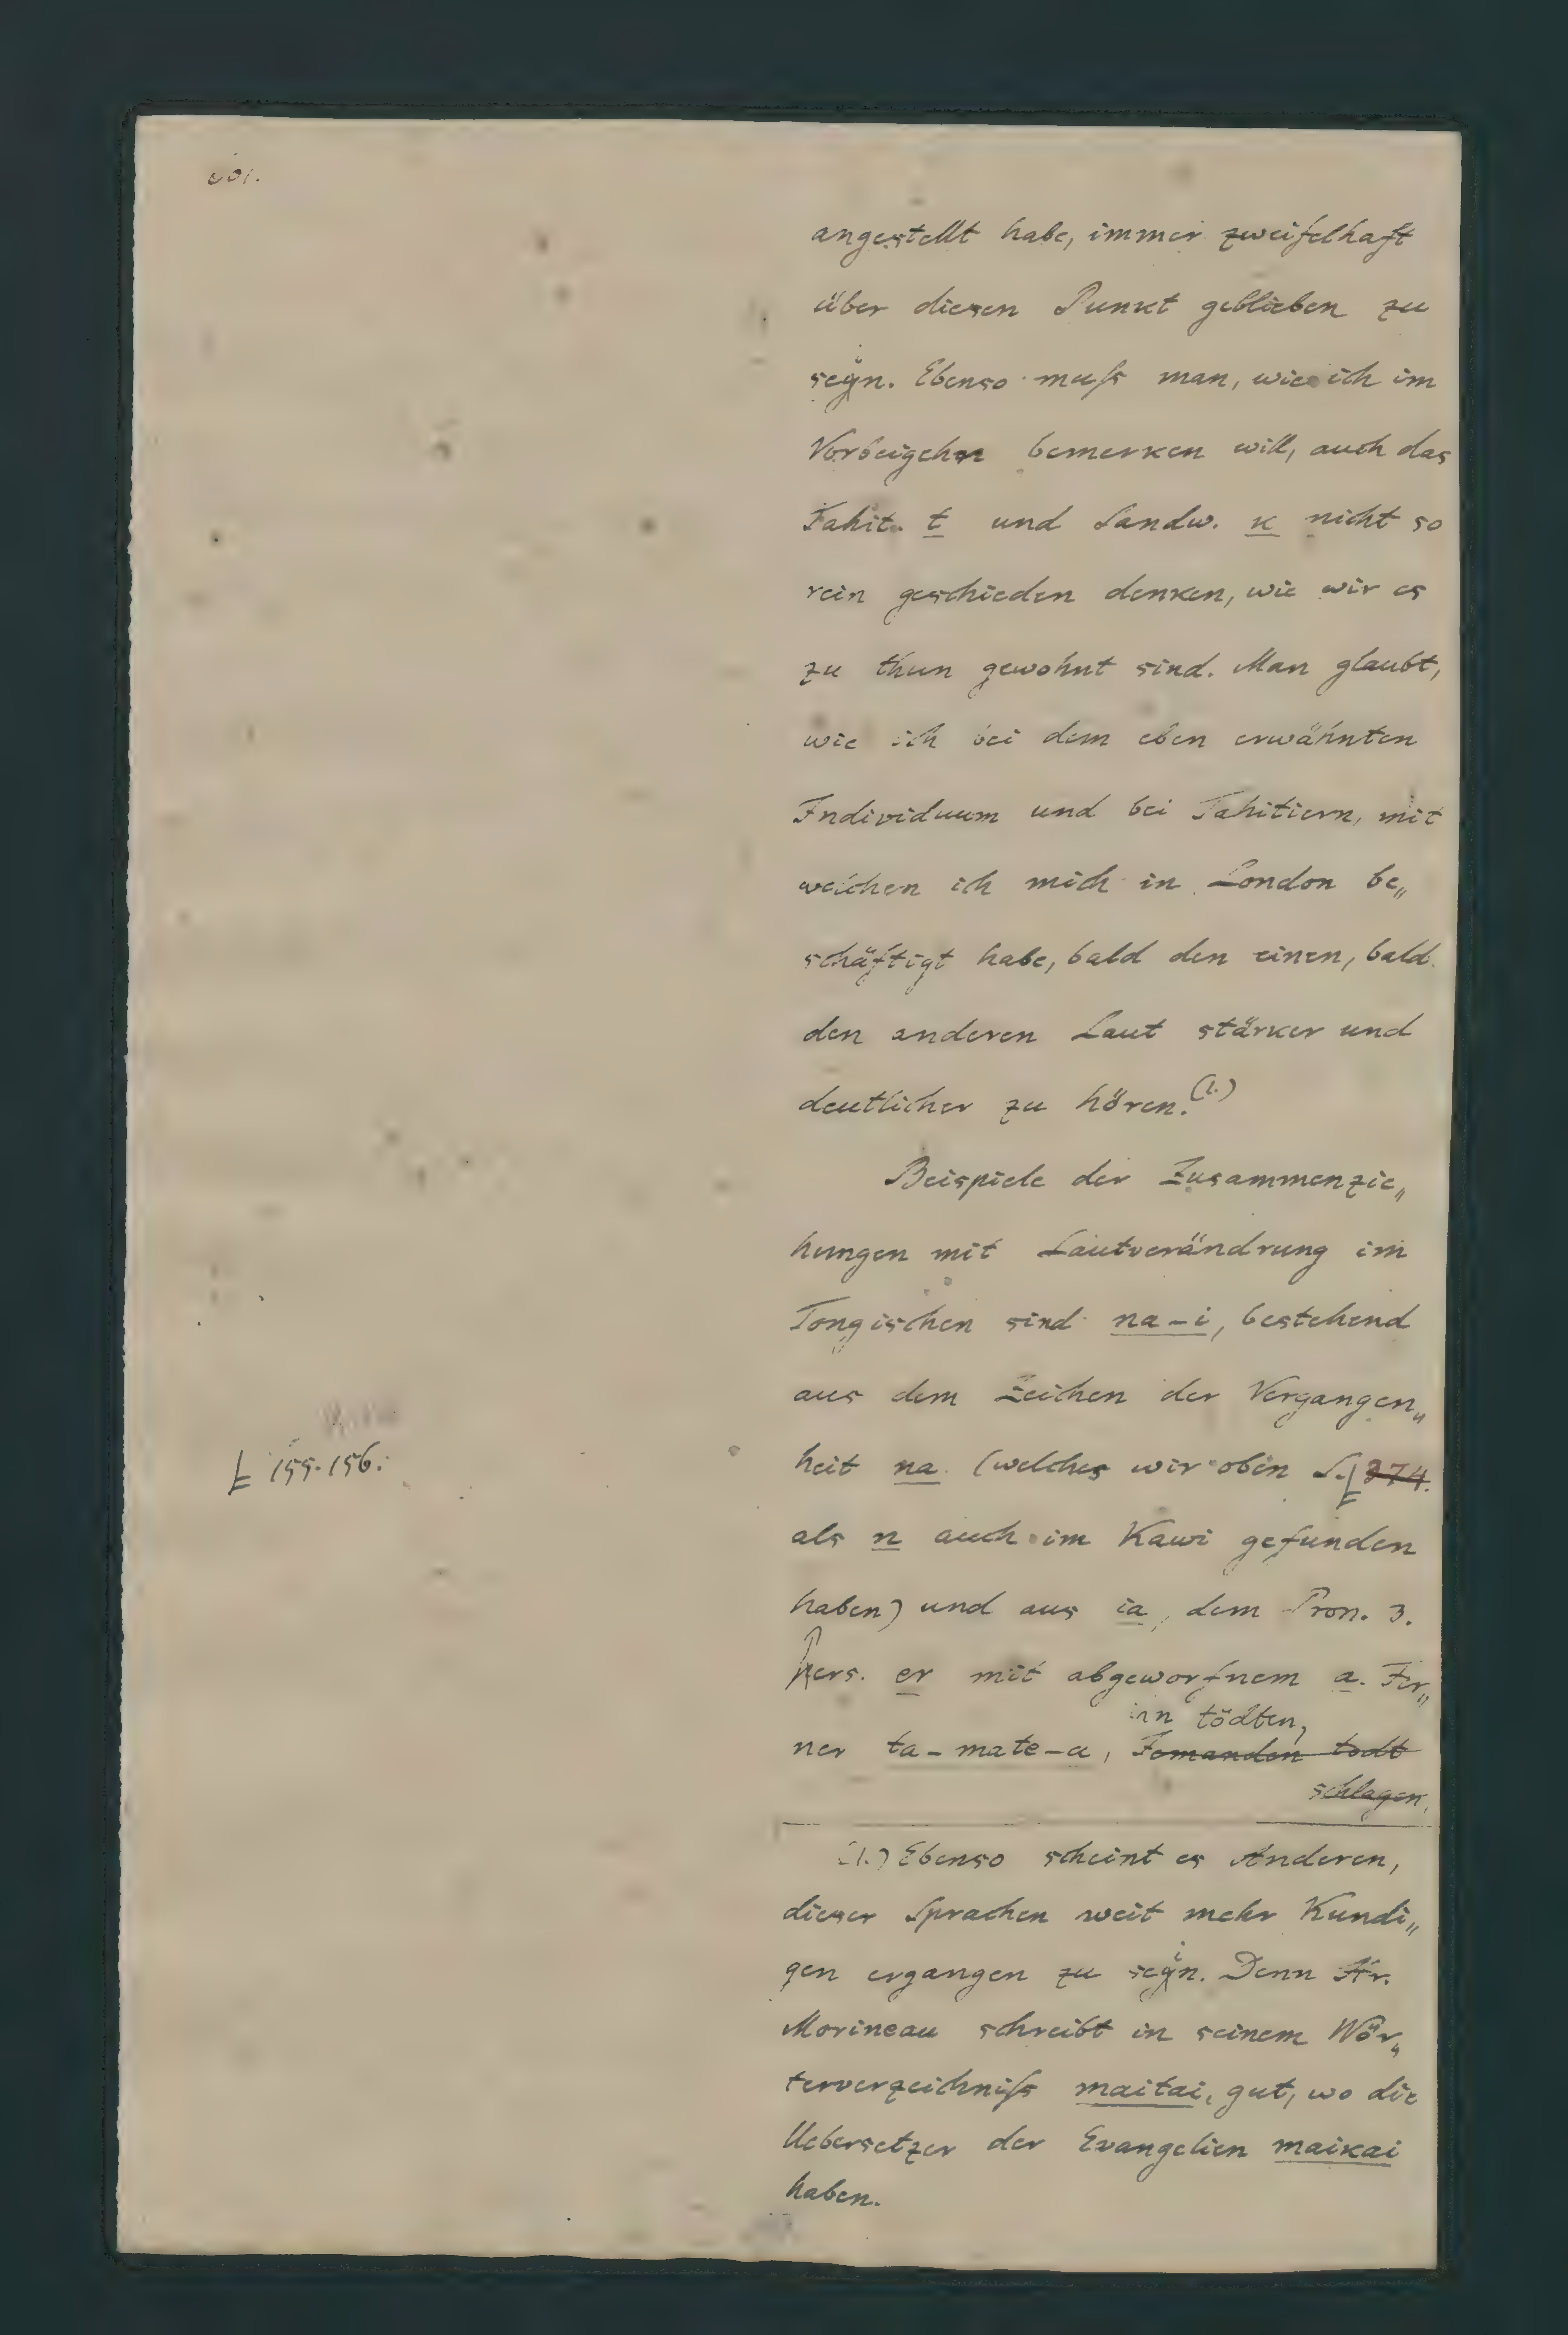 angestellt habe, immer zweifelhaft
über diesen Punkt geblieben zu
sein. Ebenso muſs man, wie ich im
Vorbeigehn bemerken will, auch das
Tahit. t und Sandw. k nicht so
rein geschieden denken, wie wir es
zu thun gewohnt sind. Man glaubt,
wie ich bei dem eben erwähnten
Individuum und bei Tahitiern, mit
welchen ich mich in London be„
schäftigt habe, bald den einen, bald
den anderen Laut stärker und
deutlicher zu hören.(1.)
Beispiele der Zusammenzie„
hungen mit Lautverändrung im
Tongischen sind na-i, bestehend
aus dem Zeichen der Vergangen„
heit na (welches wir oben S. 374.
155-156.
als n auch im Kawi gefunden
haben) und aus ia, dem Pron. 3.
Pers. er mit abgeworfnem a. Fer„
ihn tödten,
ner ta-mate-a, Jemanden todt
schlagen,
(1.) Ebenso scheint es Anderen,
dieser Sprachen weit mehr Kundi„
gen ergangen zu sein. Denn Hr.
Morineau schreibt in seinem Wör„
terverzeichniſs maitai, gut, wo die
Uebersetzer der Evangelien maikai
haben.